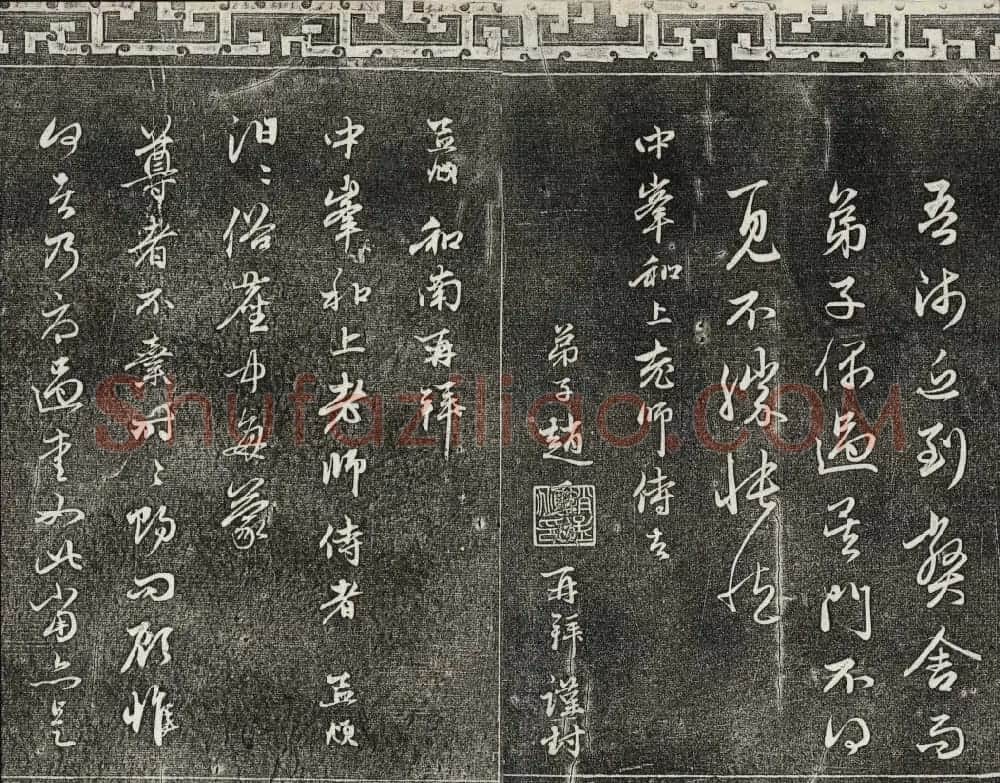 吾師近到弊舍而
弟子偶過吴門不得
見不勝悵
中峯和上老師侍者
弟子趙 再拜謹封
孟頫和南再拜
中峯和上老師侍者 孟頫
汩〻俗塵中每蒙
尊者不棄時〻賜問顧惟
何乃過愛如此當亦是
Shufaziliao.COM